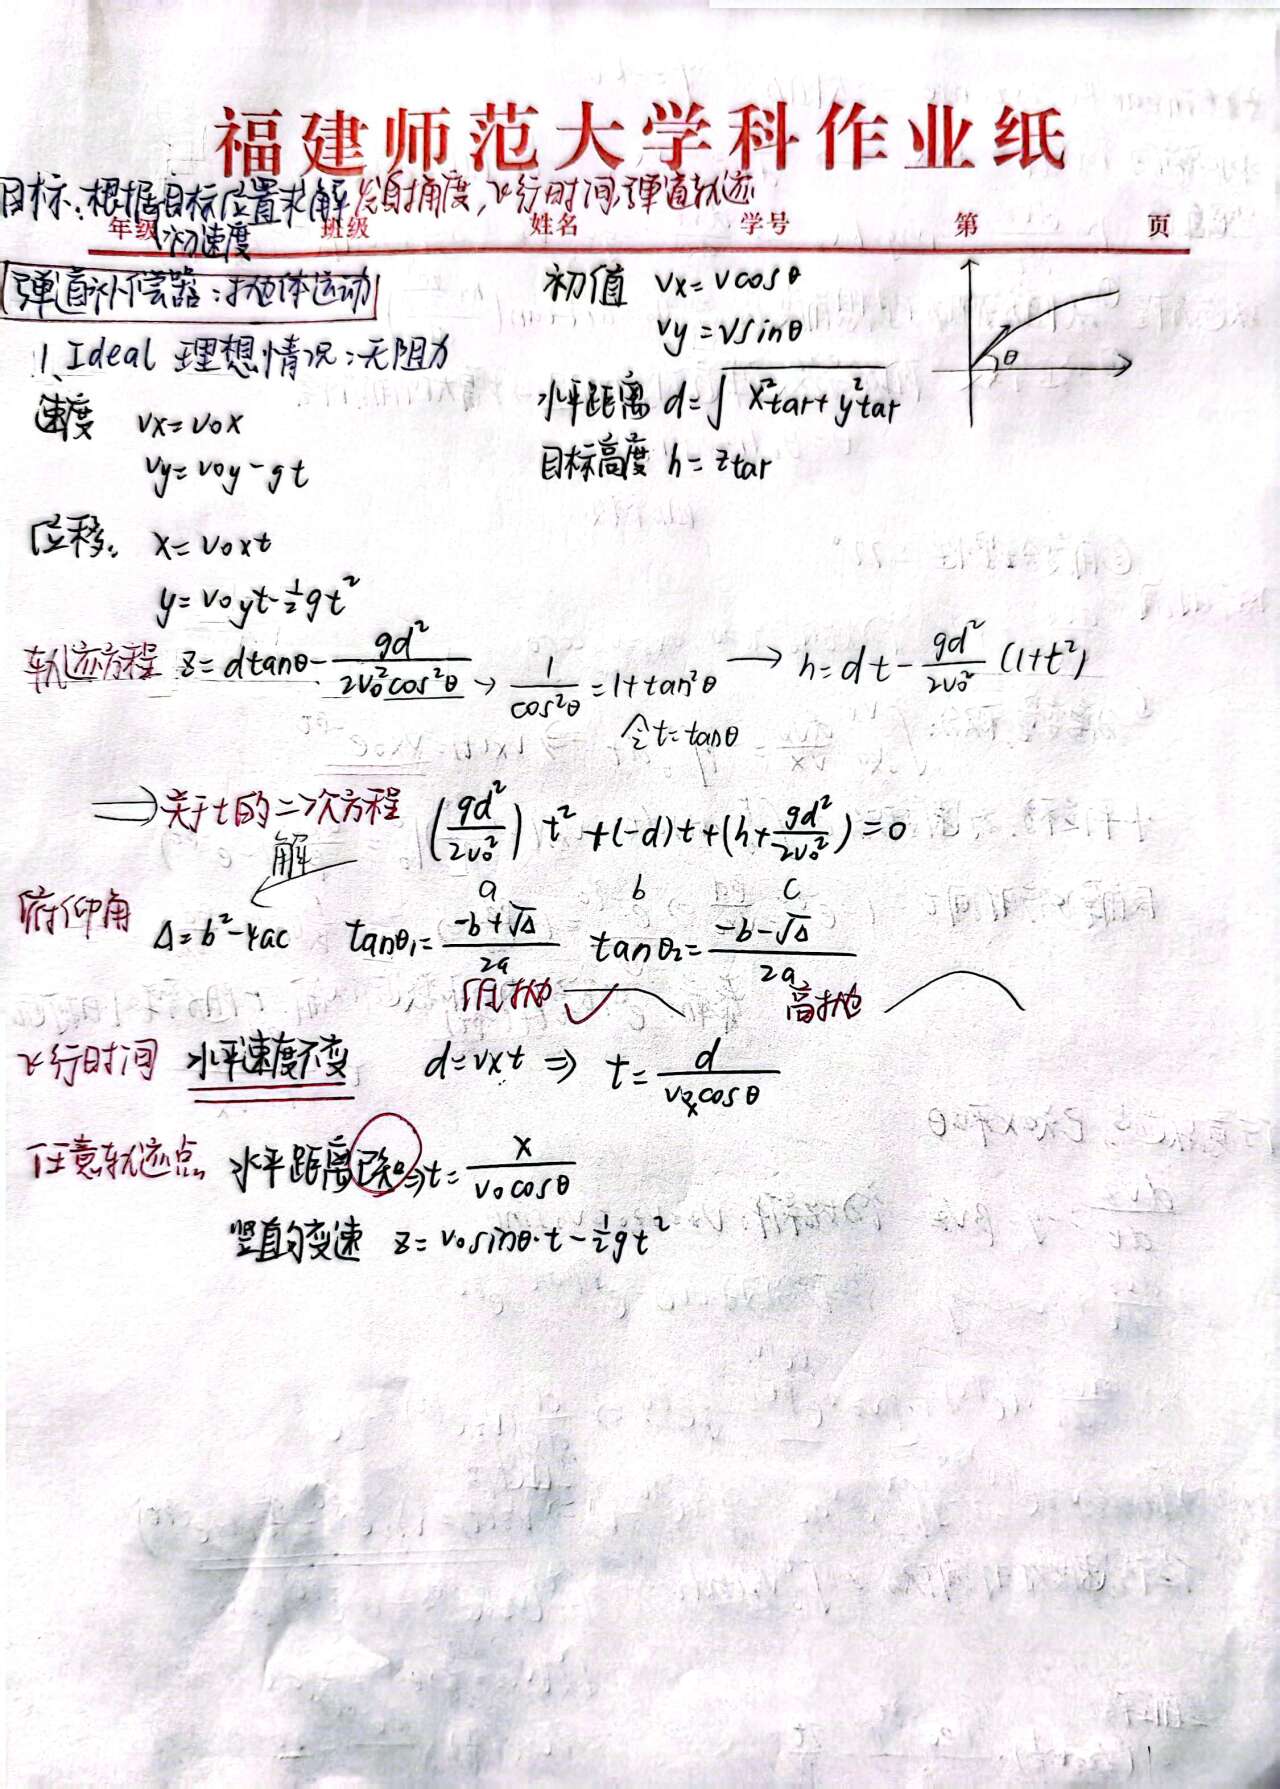 福建师范大学科作业纸
目标:根据目标位置求解发射角度,飞行时间,弹道轨迹
初速度
年级 班级 姓名 学号 第 页
弹道补偿器:抛体运动
初值 vx=vcosθ
vy=vsinθ
θ
1、Ideal 理想情况:无阻力
水平距离 d=√(x²tar+y²tar)
速度 vx=v0x
目标高度 h=ztar
vy=v0y-gt
位移: x=v0xt
y=v0yt-½gt²
轨迹方程 z=dtanθ-gd²/(2v0²cos²θ) → 1/cos²θ=1+tan²θ → h=dt-gd²/(2v0²)(1+t²)
令t=tanθ
⇒关于t的二次方程 (gd²/2v0²)t²+(-d)t+(h+gd²/2v0²)=0
解
a b c
俯仰角 Δ=b²-4ac tanθ₁=(-b+√Δ)/2a tanθ₂=(-b-√Δ)/2a
高抛
飞行时间 水平速度不变 d=vxt ⇒ t=d/(v0cosθ)
任意轨迹点 水平距离已知⇒t=x/(v0cosθ)
竖直匀变速 z=v0sinθ·t-½gt²